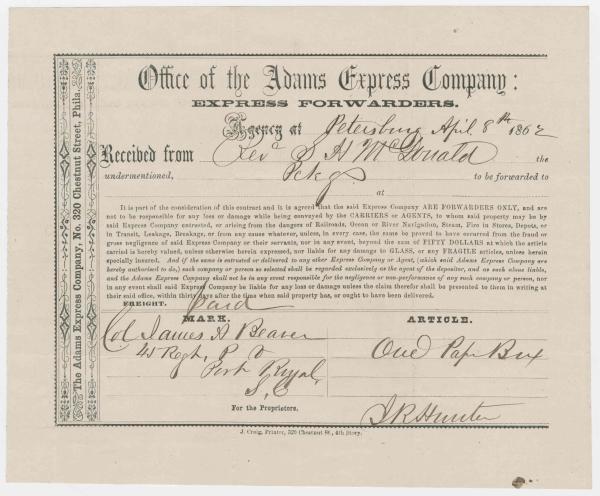 Office of the Adams Express Company:
EXPRESS FORWARDERS.
Agency at Petersburg April 8th 1862
Received from Revd S H McDonald the
undermentioned, Pckg to be forwarded to
at
It is part of the consideration of this contract and it is agreed that the said Express Company ARE FORWARDERS ONLY, and are
not to be responsible for any loss or damage while being conveyed by the CARRIERS or AGENTS, to whom said property may be by
said Express Company entrusted, or arising from the dangers of Railroads, Ocean or River Navigation, Steam, Fire in Stores, Depots, or
in Transit, Leakage, Breakage, or from any cause whatever, unless, in every case, the same be proved to have occurred from the fraud or
gross negligence of said Express Company or their servants, nor in any event, beyond the sum of FIFTY DOLLARS at which the article
carried is hereby valued, unless otherwise herein expressed, nor liable for any damage to GLASS, or any FRAGILE articles, unless herein
especially insured. And if the same is entrusted or delivered to any other Express Company or Agent, (which said Adams Express Company are
hereby authorised to do,) such company or person so selected shall be regarded exclusively as the agent of the depositor, and as such alone liable,
and the Adams Express Company shall not be in any event responsible for the negligence or non-performance of any such company or person, nor
in any event shall said Express Company be liable for any loss or damage unless the claim therefor shall be presented to them in writing at
their said office, within thirty days after the time when said property has, or ought to have been delivered.
FREIGHT. paid
MARK. ARTICLE.
Col James A Beaver
45 Regt. P V One Papr Box
Port Royal
S, C
For the Proprietors. J R Hunter
J. Craig, Printer, 320 Chestnut St., 4th Story.
The Adams Express Company, No. 320 Chestnut Street, Phila.